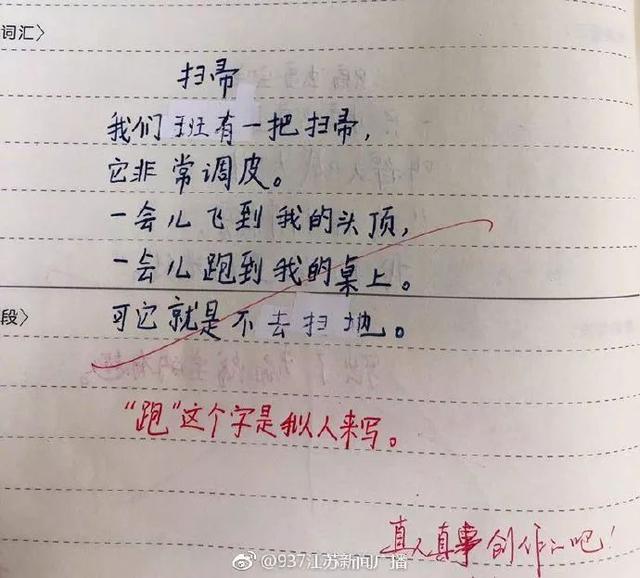 词汇〉
扫帚
我们班有一把扫帚，
它非常调皮。
一会儿飞到我的头顶，
一会儿跑到我的桌上。
段〉
可它就是不去扫地。
“跑”这个字是拟人来写。
真人真事创作的吧！
@937江苏新闻广播